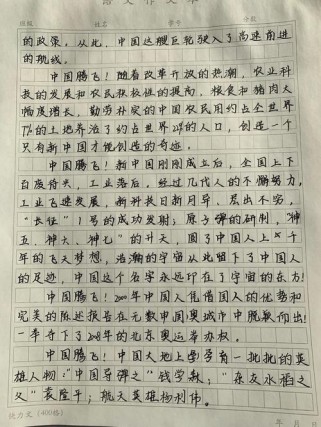 语文作文本
班级 姓名 学号 分数
的政策，从此，中国这艘巨轮驶入了高速前进
的航线。
中国腾飞！随着改革开放的热潮，农业科
技的发展和农民积极性的提高，粮食和猪肉大
幅度增长，勤劳朴实的中国农民用约占全世界
7%的土地养活了约占世界22%的人口，创造一个
只有新中国才能创造的奇迹。
中国腾飞！新中国刚刚成立后，全国上下
百废待兴，工业落后，经过几代人的不懈努力，
工业飞速发展，新科技日新月异，层出不穷，
“长征”1号的成功发射；原子弹的研制，“神
五、神六、神七”的升天，圆了中国人上千
年的飞天梦想，浩瀚的宇宙从此留下了中国人
的足迹，中国这个名字永远印在了宇宙的东方！
中国腾飞！2001年中国人凭借国人的优势和
完美的陈述报告在无数申国奥城市中脱颖而出！
一举夺下了2008年的北京奥运举办权。
中国腾飞！中国大地上孕育着一批批的英
雄人物：“中国导弹之”钱学森；“东友水稻之
父”袁隆平；航天英雄杨利伟。
(400格)
年 月 日